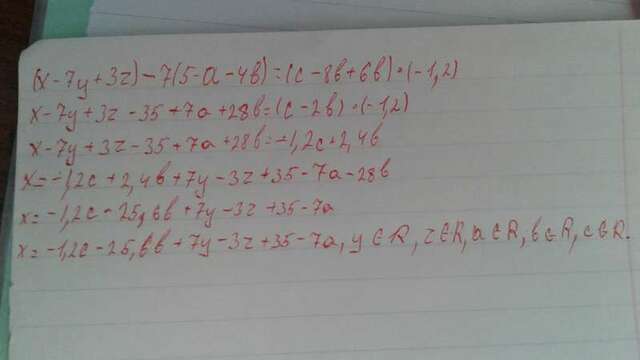 (x-7y+3z)-7(5-a-4в)=(c-8в+6в)·(-1,2)
x-7y+3z-35+7a+28в=(c-2в)·(-1,2)
x-7y+3z-35+7a+28в=-1,2c+2,4в
x=-1,2c+2,4в+7y-3z+35-7a-28в
x=-1,2c-25,6в+7y-3z+35-7a
x=-1,2c-25,6в+7y-3z+35-7a, y∈R, z∈R, a∈R, в∈R, c∈R.